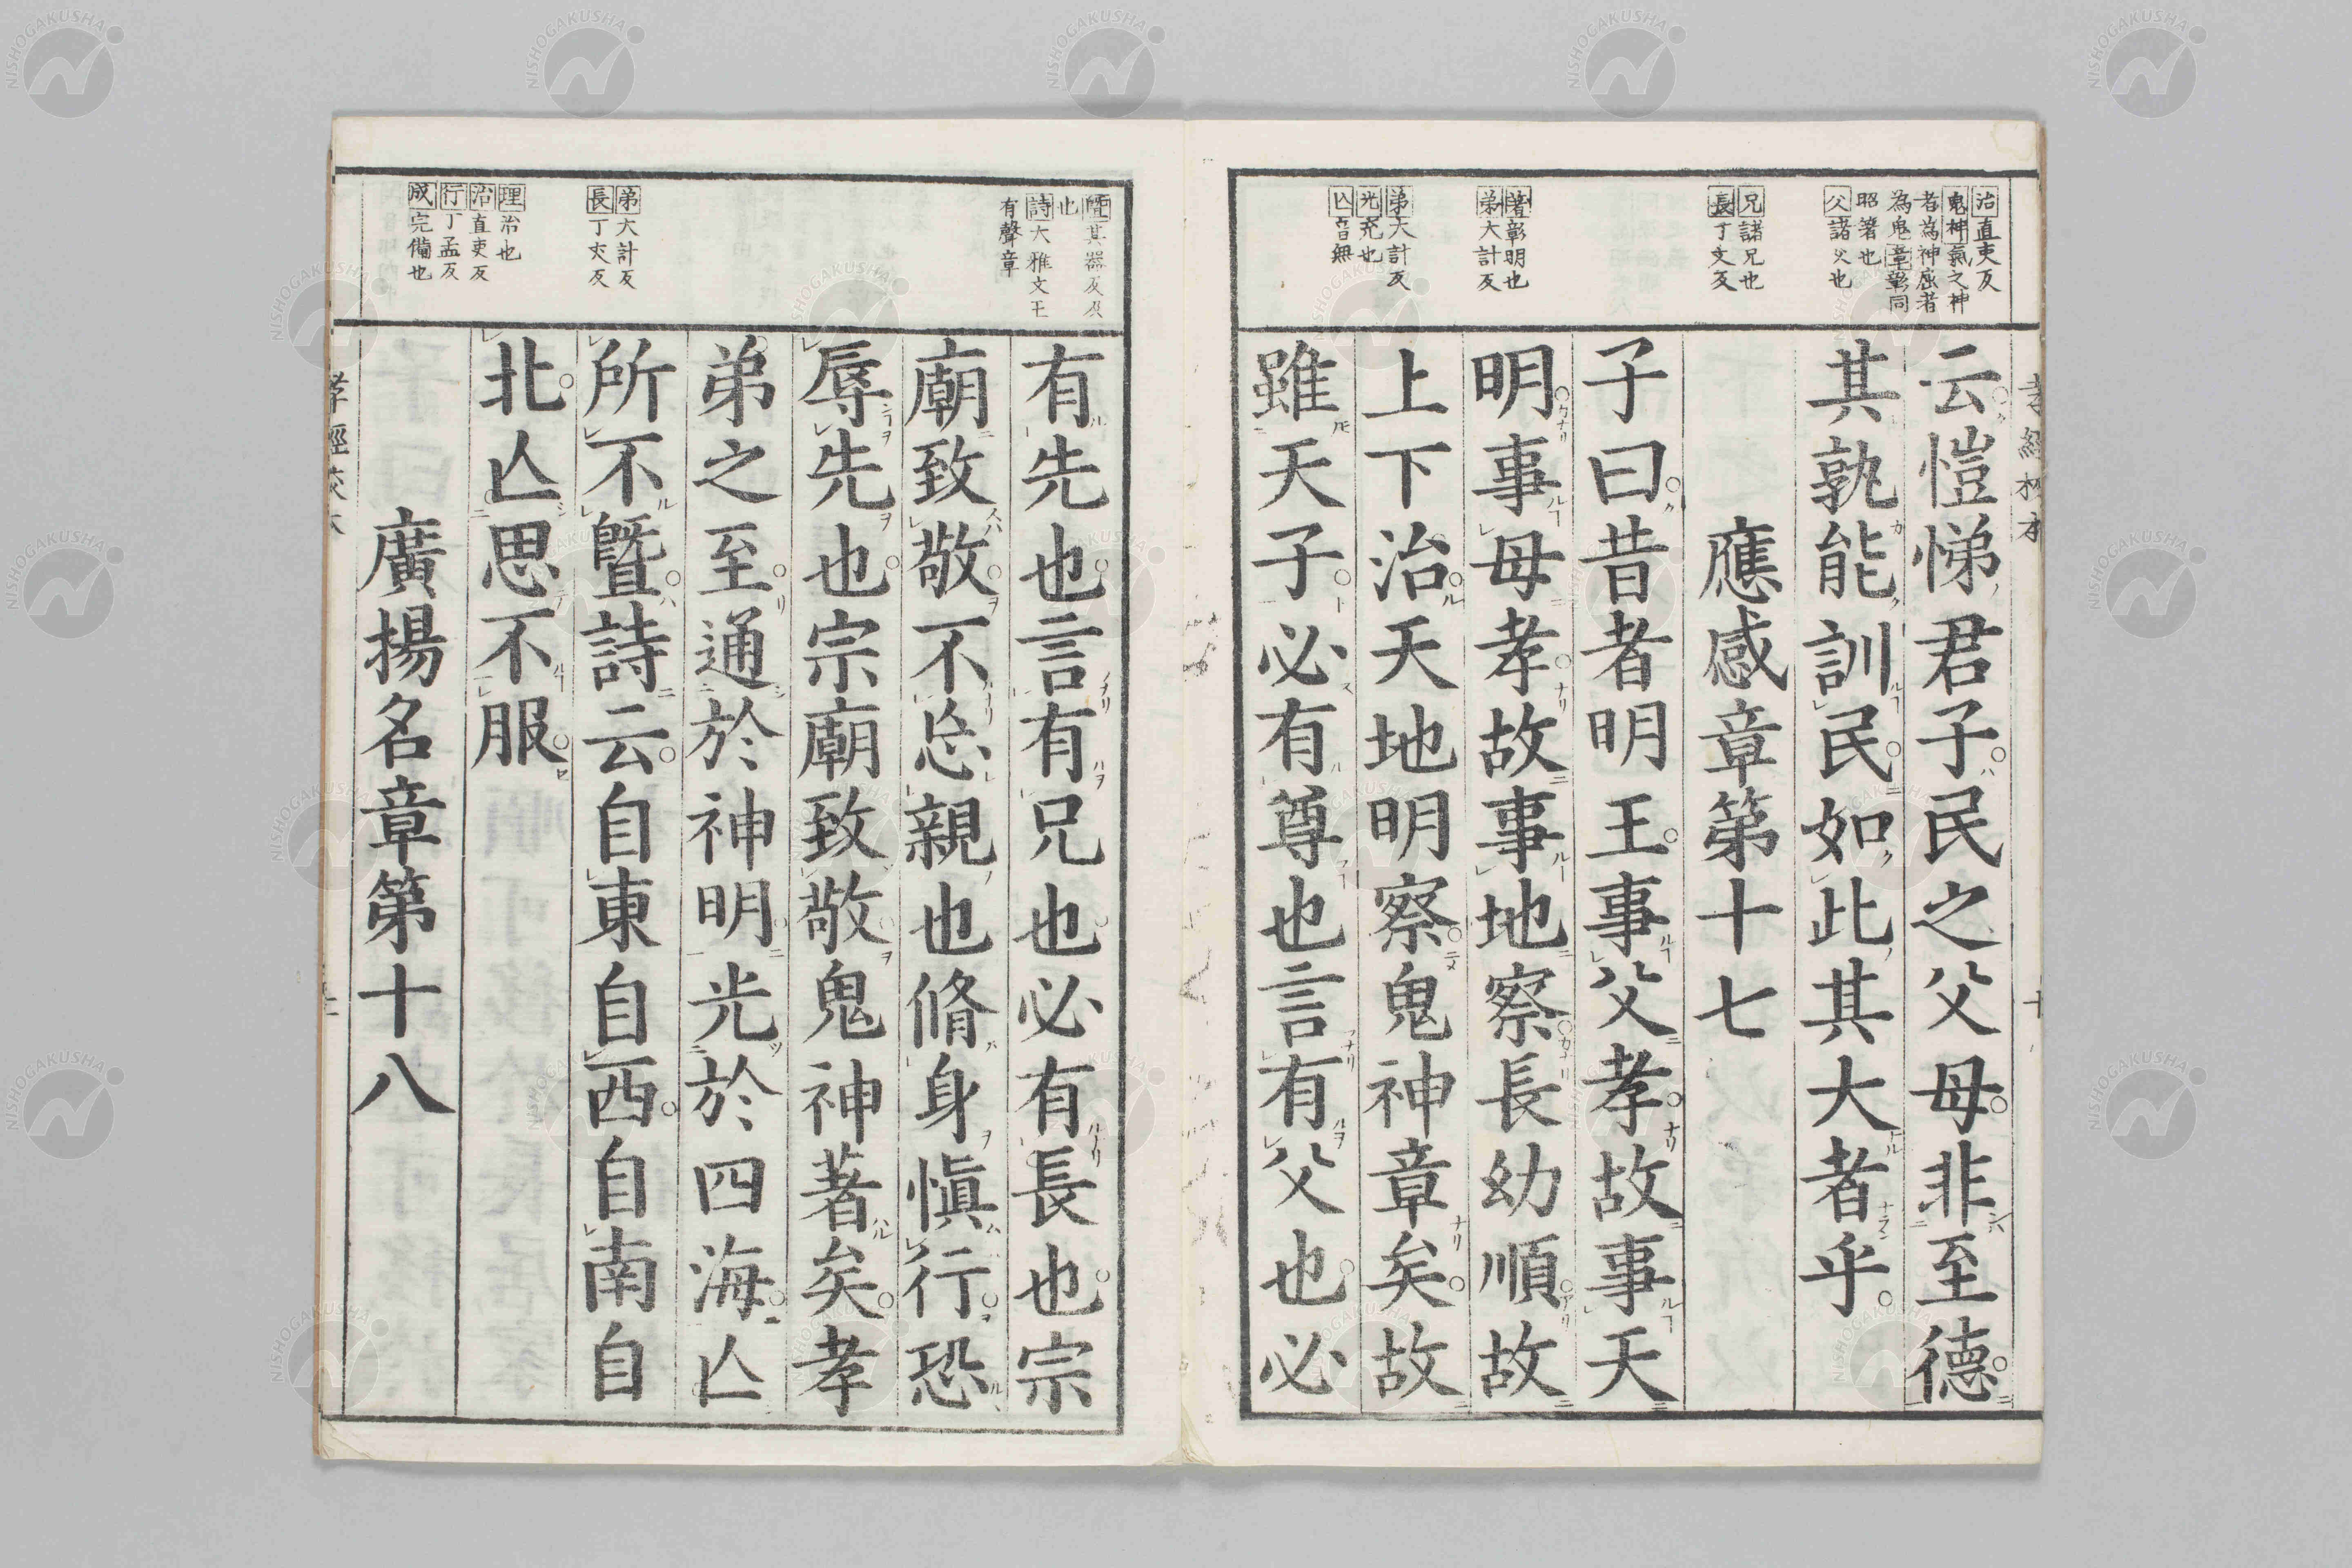 治直吏反
鬼神氣之神
者為神屈者
為鬼章彰同
昭著也
父諸父也
兄諸兄也
長丁丈反
著彰明也
弟大計反
弟大計反
光充也
亾音無
云愷悌君子民之父母非至德
其孰能訓民如此其大者乎
應感章第十七
子曰昔者明王事父孝故事天
明事母孝故事地察長幼順故
上下治天地明察鬼神章矣故
雖天子必有尊也言有父也必
曁其器反及
也
詩大雅文王
有聲章
弟大計反
長丁丈反
理治也
治直吏反
行丁孟反
成完備也
有先也言有兄也必有長也宗
廟致敬不忘親也脩身愼行恐
辱先也宗廟致敬鬼神著矣孝
弟之至通於神明光於四海亾
所不曁詩云自東自西自南自
北亾思不服
廣揚名章第十八
孝經校本
NISHOGAKUSHA